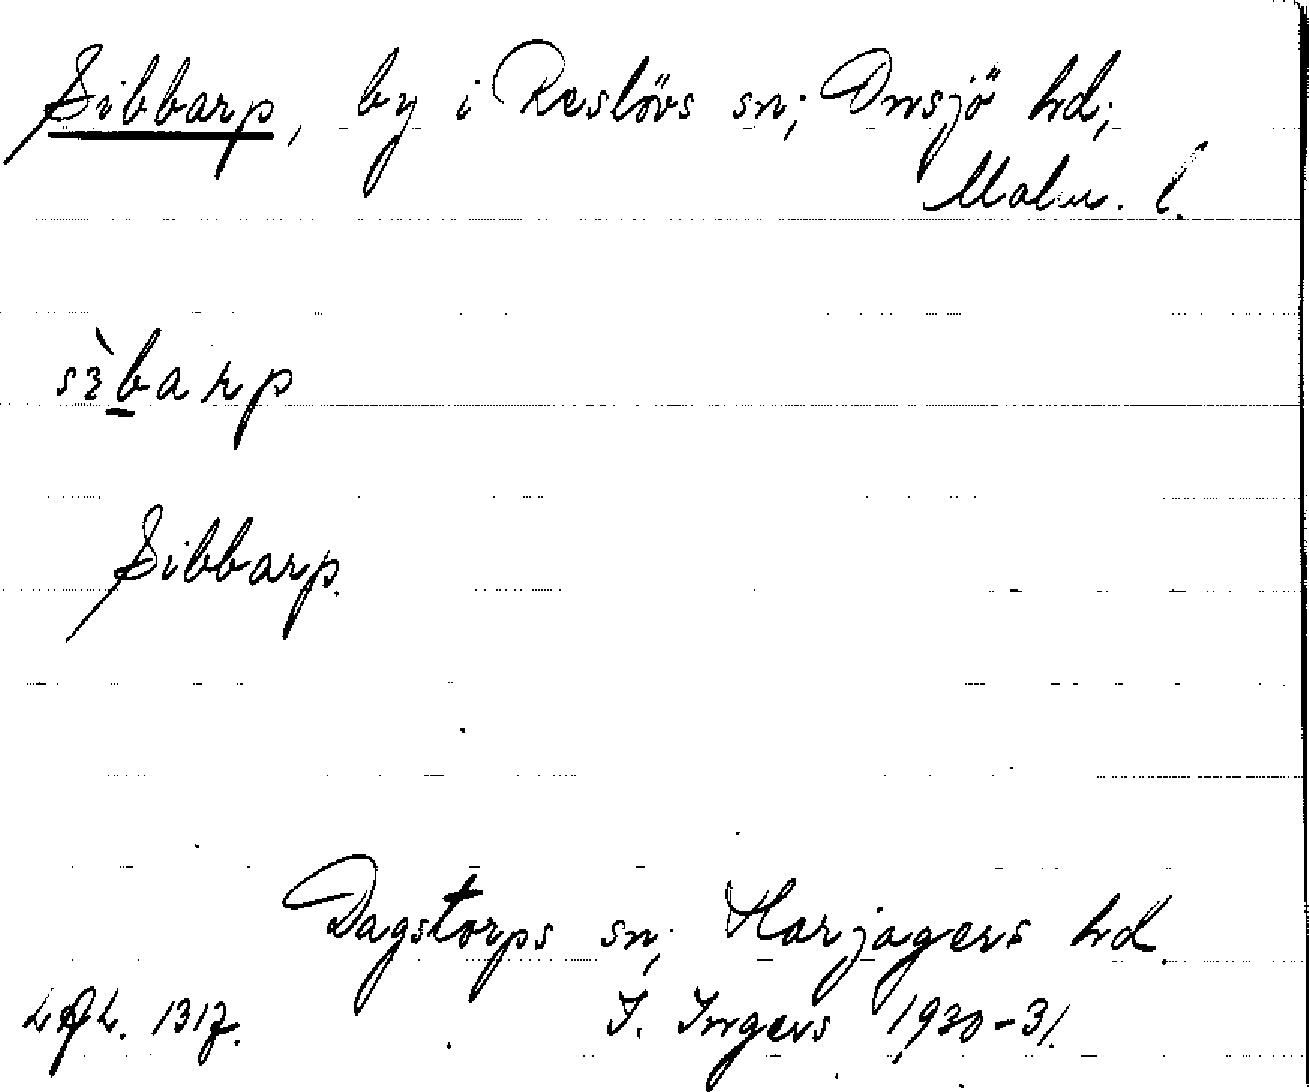 Sibbarp, by i Reslövs sn; Onsjö hd;
Malm. l.
sèbarp
Sibbarp.
Dagstorps sn; Harjagers hd.
1317.
I. Ingers 1930-31.